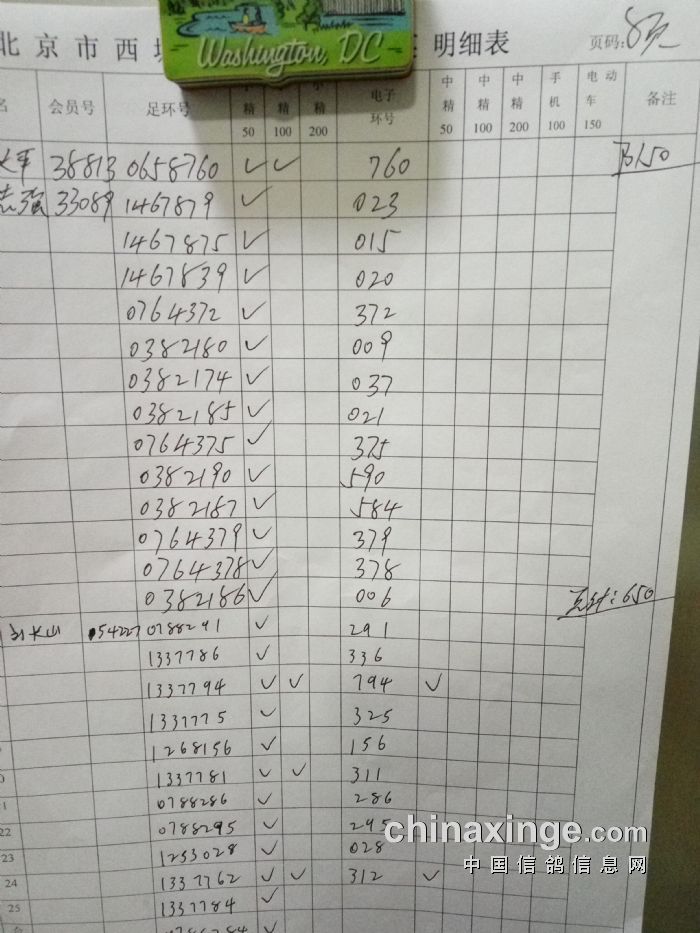 Washington, DC
北京市西 明细表 页码:8页
名 会员号 足环号 精 50 精 100 精 200 电子环号 中精 50 中精 100 中精 200 手机 100 电动车 150 备注
军 38813 0658760 ✓ ✓ 760 150
志强 33089 1467879 ✓ 023
1467875 ✓ 015
1467839 ✓ 020
0764372 ✓ 372
0382180 ✓ 009
0382174 ✓ 037
0382185 ✓ 021
0764375 ✓ 375
0382190 ✓ 590
0382187 ✓ 584
0764379 ✓ 379
0764378 ✓ 378
0382186 ✓ 006 共计:650
长山 54227 0788291 ✓ 291
1337786 ✓ 336
1337794 ✓ ✓ 794 ✓
1337775 ✓ 325
1268156 ✓ 156
1337781 ✓ ✓ 311
0788286 ✓ 286
22 0788295 ✓ 295
23 1253028 ✓ 028
24 1337762 ✓ ✓ 312 ✓
25 1337784 ✓
chinaxinge.com
中国信鸽信息网